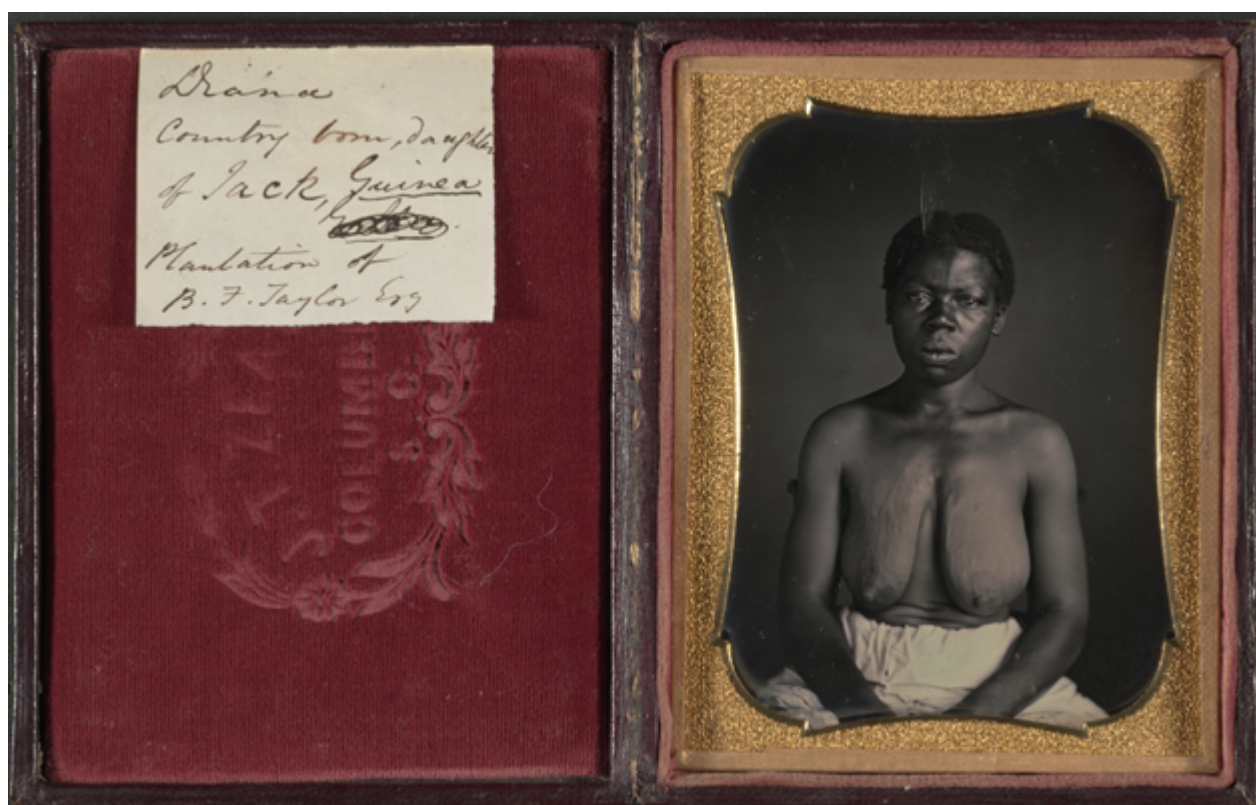 Drana
Country born, daughter
of Jack, Guinea
Plantation of
B. F. Taylor Esq
ZEA
COLUMB
S. C.